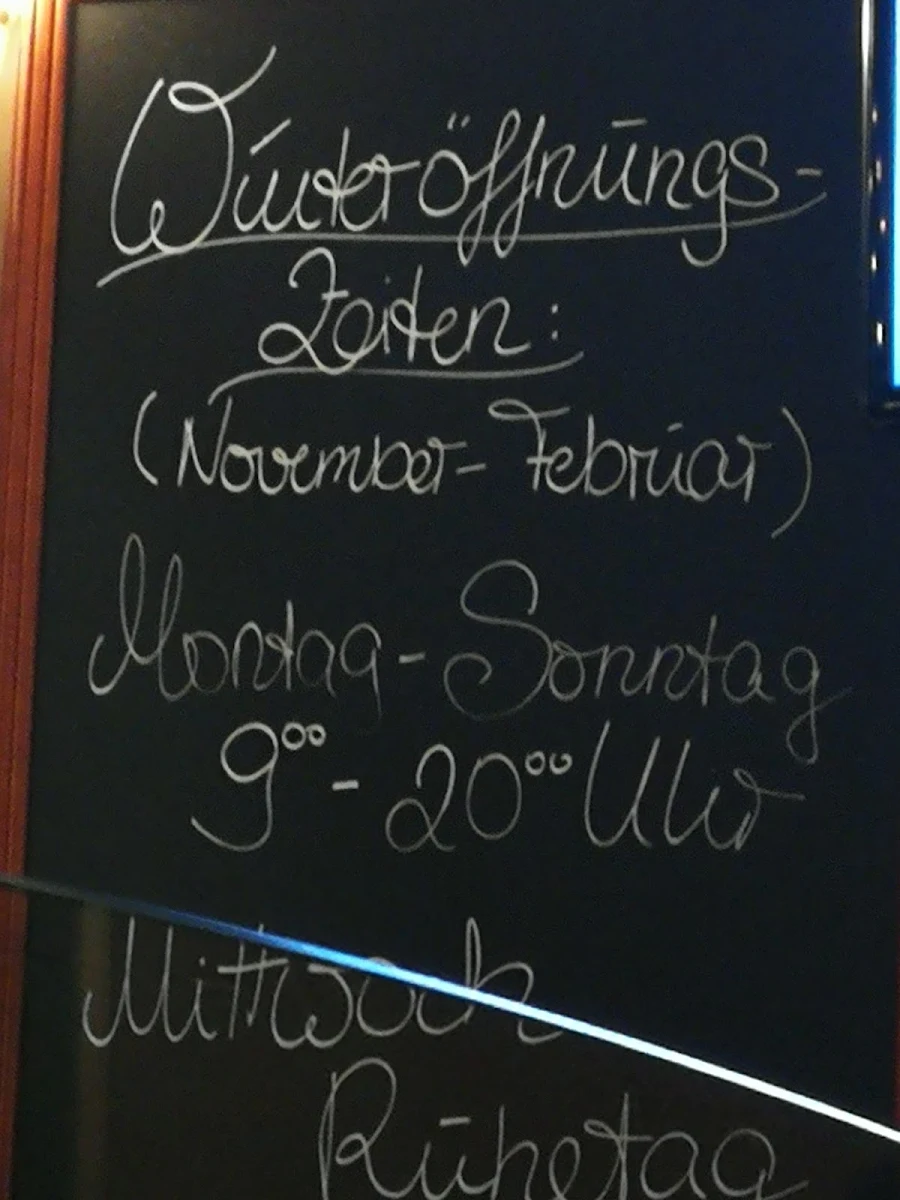 Winteröffnungs-
Zeiten:
(November- Februar)
Montag - Sonntag
9⁰⁰ - 20⁰⁰ Uhr
Mittwoch
Ruhetag